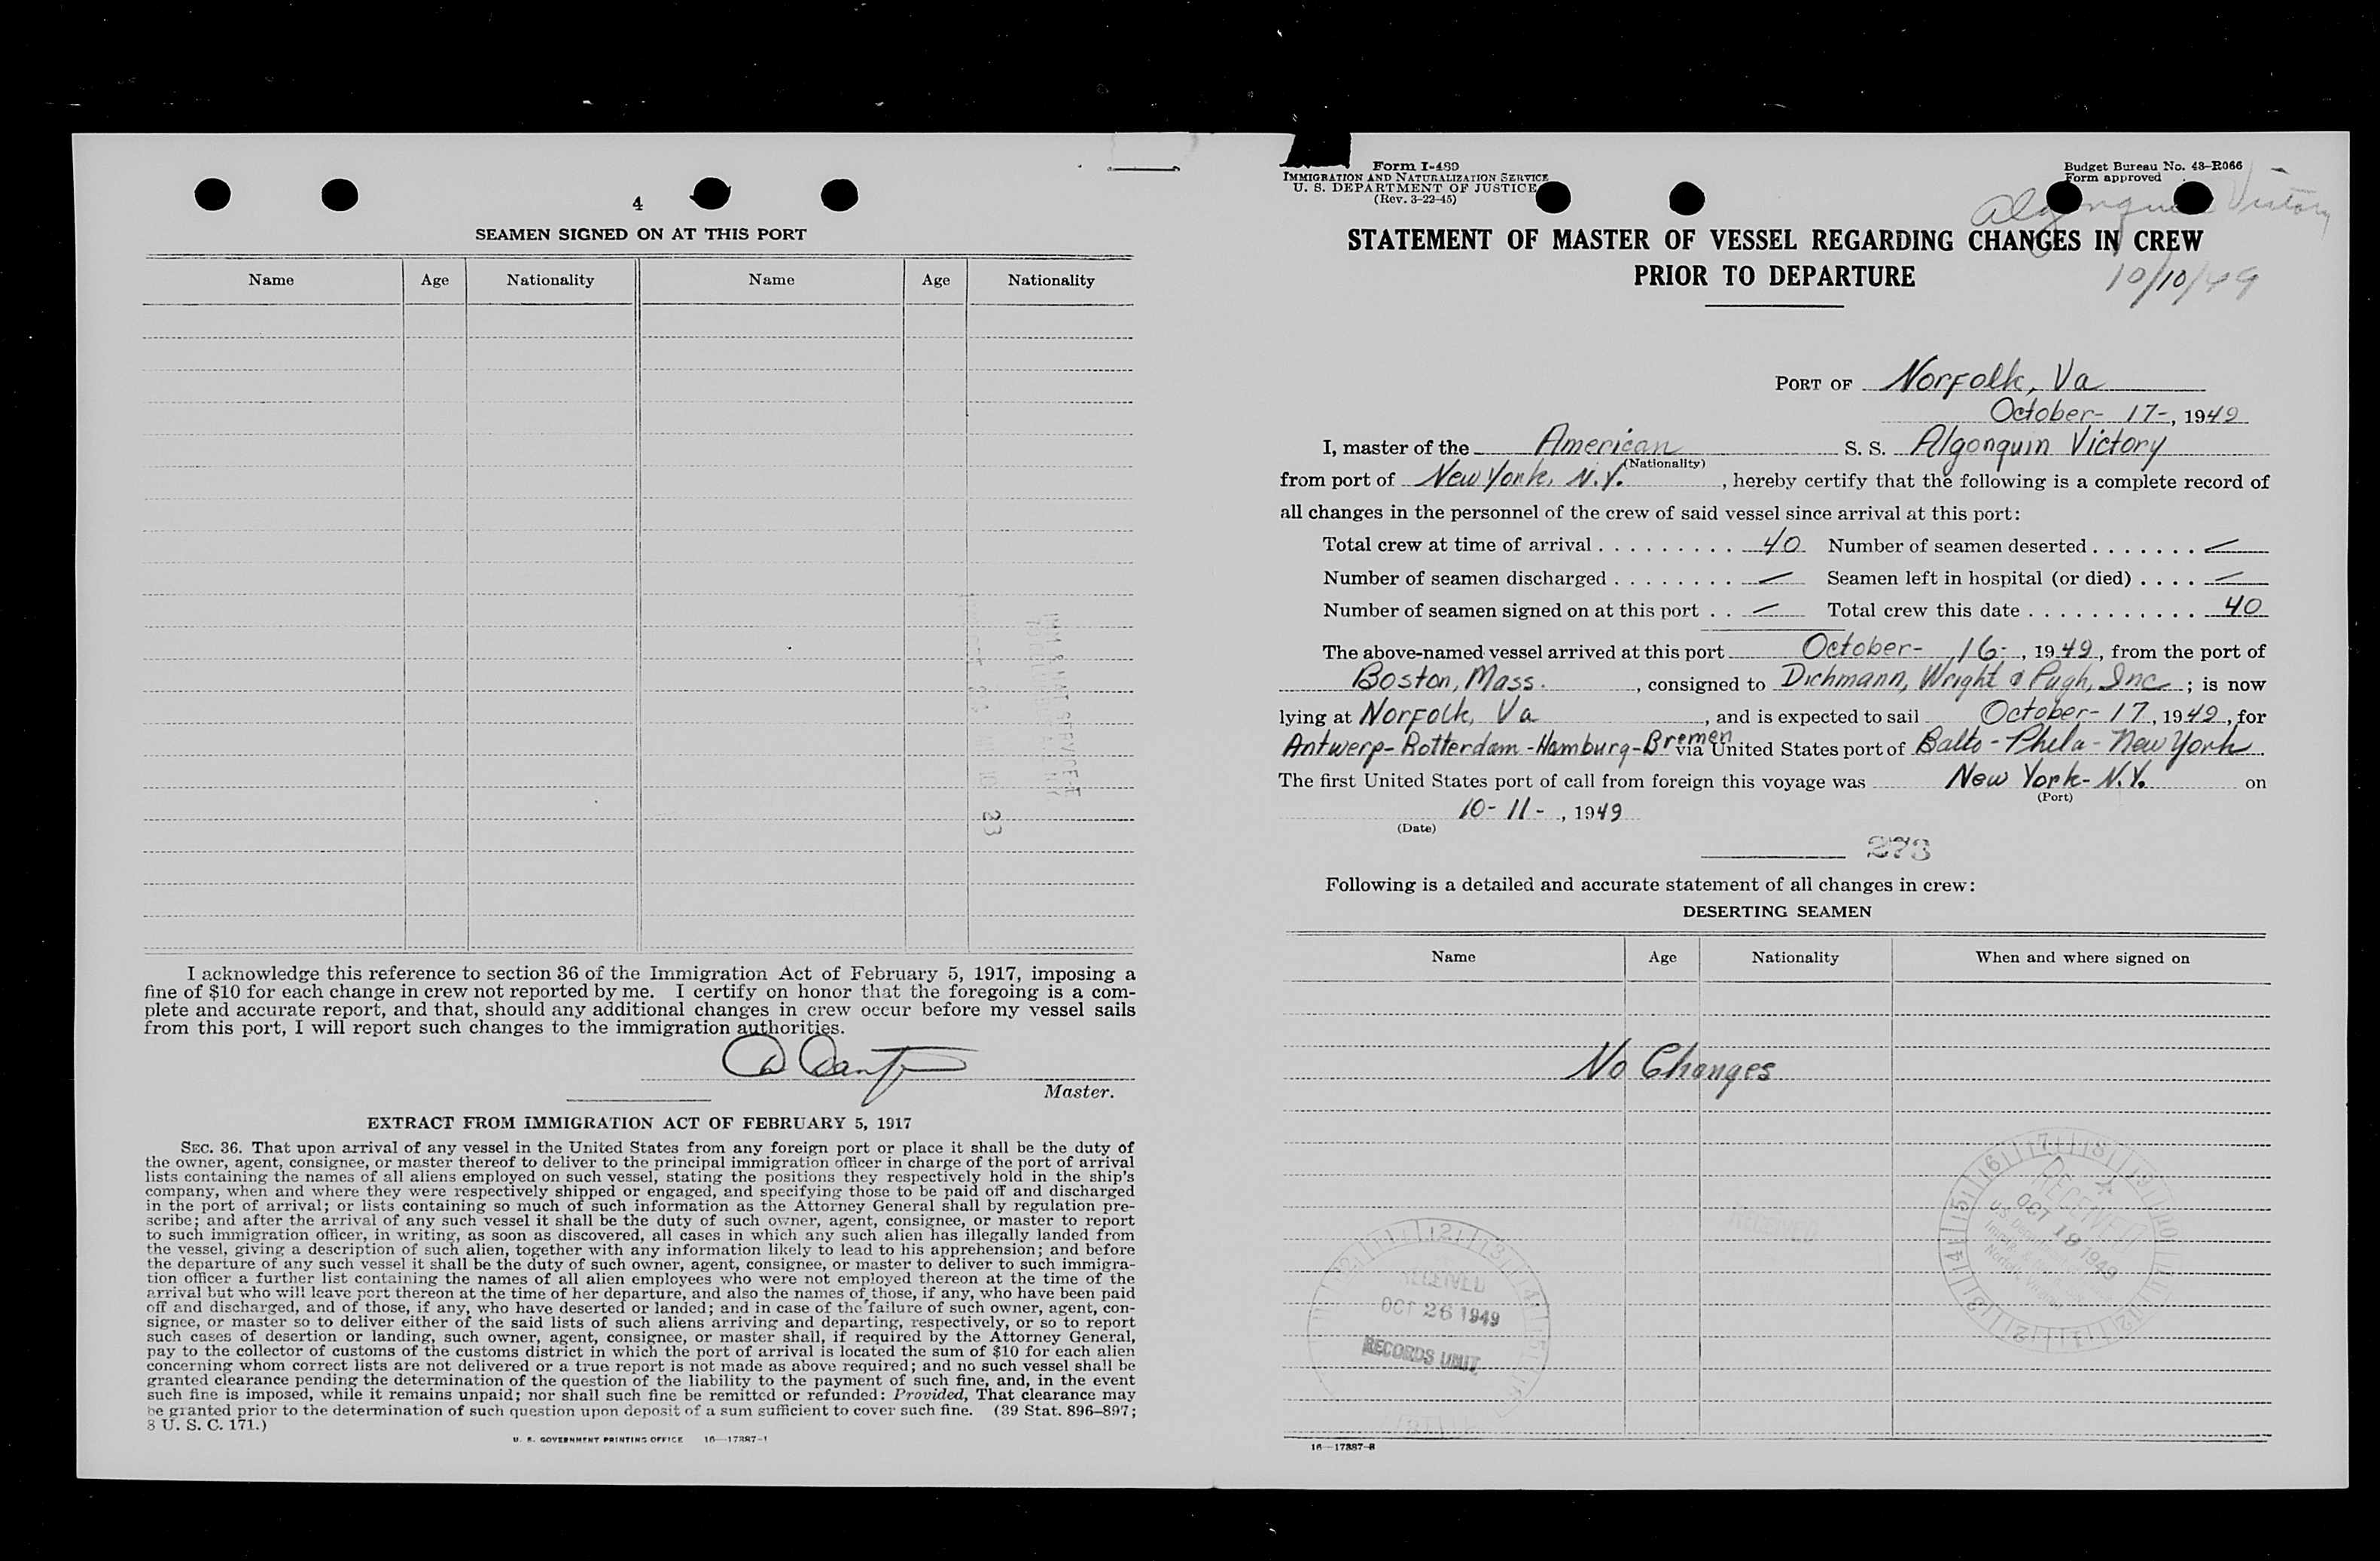 4
SEAMEN SIGNED ON AT THIS PORT
Name Age Nationality Name Age Nationality
I acknowledge this reference to section 36 of the Immigration Act of February 5, 1917, imposing a
fine of $10 for each change in crew not reported by me. I certify on honor that the foregoing is a com-
plete and accurate report, and that, should any additional changes in crew occur before my vessel sails
from this port, I will report such changes to the immigration authorities.
Master.
EXTRACT FROM IMMIGRATION ACT OF FEBRUARY 5, 1917
SEC. 36. That upon arrival of any vessel in the United States from any foreign port or place it shall be the duty of
the owner, agent, consignee, or master thereof to deliver to the principal immigration officer in charge of the port of arrival
lists containing the names of all aliens employed on such vessel, stating the positions they respectively hold in the ship's
company, when and where they were respectively shipped or engaged, and specifying those to be paid off and discharged
in the port of arrival; or lists containing so much of such information as the Attorney General shall by regulation pre-
scribe; and after the arrival of any such vessel it shall be the duty of such owner, agent, consignee, or master to report
to such immigration officer, in writing, as soon as discovered, all cases in which any such alien has illegally landed from
the vessel, giving a description of such alien, together with any information likely to lead to his apprehension; and before
the departure of any such vessel it shall be the duty of such owner, agent, consignee, or master to deliver to such immigra-
tion officer a further list containing the names of all alien employees who were not employed thereon at the time of the
arrival but who will leave port thereon at the time of her departure, and also the names of those, if any, who have been paid
off and discharged, and of those, if any, who have deserted or landed; and in case of the failure of such owner, agent, con-
signee, or master so to deliver either of the said lists of such aliens arriving and departing, respectively, or so to report
such cases of desertion or landing, such owner, agent, consignee, or master shall, if required by the Attorney General,
pay to the collector of customs of the customs district in which the port of arrival is located the sum of $10 for each alien
concerning whom correct lists are not delivered or a true report is not made as above required; and no such vessel shall be
granted clearance pending the determination of the question of the liability to the payment of such fine, and, in the event
such fine is imposed, while it remains unpaid; nor shall such fine be remitted or refunded: Provided, That clearance may
be granted prior to the determination of such question upon deposit of a sum sufficient to cover such fine. (39 Stat. 896-897;
8 U. S. C. 171.)
U. S. GOVERNMENT PRINTING OFFICE 16—17887-1
Form I-489
IMMIGRATION AND NATURALIZATION SERVICE
U. S. DEPARTMENT OF JUSTICE
(Rev. 3-22-45)
Budget Bureau No. 43-R066
Form approved
Algonquin Victory
STATEMENT OF MASTER OF VESSEL REGARDING CHANGES IN CREW
PRIOR TO DEPARTURE
10/10/49
PORT OF Norfolk, Va
October- 17-, 1949
I, master of the American S. S. Algonquin Victory
(Nationality)
from port of New York, N.Y. , hereby certify that the following is a complete record of
all changes in the personnel of the crew of said vessel since arrival at this port:
Total crew at time of arrival 40 Number of seamen deserted —
Number of seamen discharged — Seamen left in hospital (or died) —
Number of seamen signed on at this port — Total crew this date 40
The above-named vessel arrived at this port October- 16-, 1949, from the port of
Boston, Mass. , consigned to Dichmann, Wright & Pugh, Inc ; is now
lying at Norfolk, Va , and is expected to sail October-17, 1949, for
Antwerp-Rotterdam-Hamburg-Bremen via United States port of Balto-Phila-New York
The first United States port of call from foreign this voyage was New York-N.Y. on
(Port)
10-11-, 1949
(Date)
273
Following is a detailed and accurate statement of all changes in crew:
DESERTING SEAMEN
Name Age Nationality When and where signed on
No Changes
RECEIVED
OCT 19 1949
RECEIVED
OCT 26 1949
RECORDS UNIT
16—17887-3